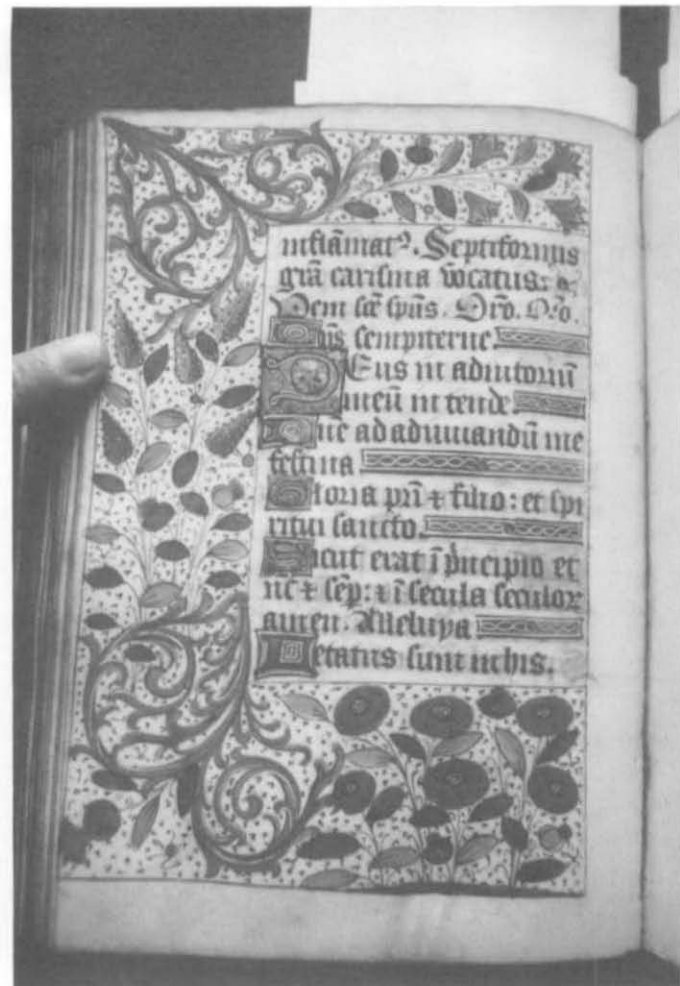 inflāmatꝰ. Septiformis
grā carisma vocatus: a.
Veni scē spūs. Oro. Oro.
Oīps sempiterne.
DEus in adiutoriū
meū intende.
Dne ad adiuuandū me
festina
Gloria pri ⁊ filio: et spi
ritui sancto.
Sicut erat ī pͥncipio et
nc ⁊ sēp: ⁊ ī secula seculoꝝ
amen. Alleluya
Letatus sum in his.